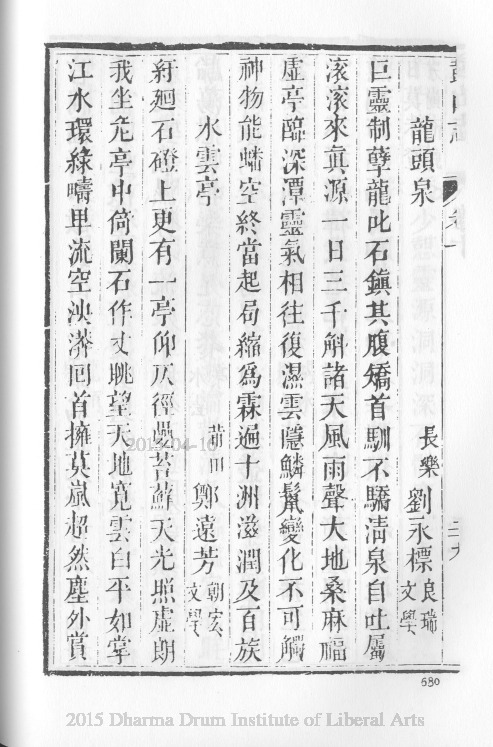 龍頭泉
長樂劉永標良瑞文學
巨靈制孽龍此石鎮其腹矯首馴不驕清泉自吐屬
滾滾來眞源一日三千斛諸天風雨聲大地桑麻福
虛亭臨深潭靈氣相往復濕雲隱鱗鬣變化不可觸
神物能蟠空終當起局縮爲霖遍十洲滋潤及百族
水雲亭
莆田鄭遠芳朝宏文學
紆廻石磴上更有一亭仰仄徑疊苔蘚天光照虛朗
我坐危亭中倚闌石作丈眺望天地寬雲白平如掌
江水環綠疇畢流空泱漭回首擁莫嵐超然塵外賞
二九
680
2015-04-10
2015 Dharma Drum Institute of Liberal Arts